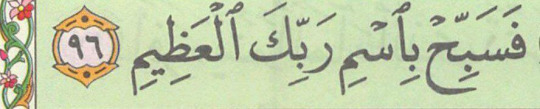 فَسَبِّحۡ بِٱسۡمِ رَبِّكَ ٱلۡعَظِيمِ ٩٦